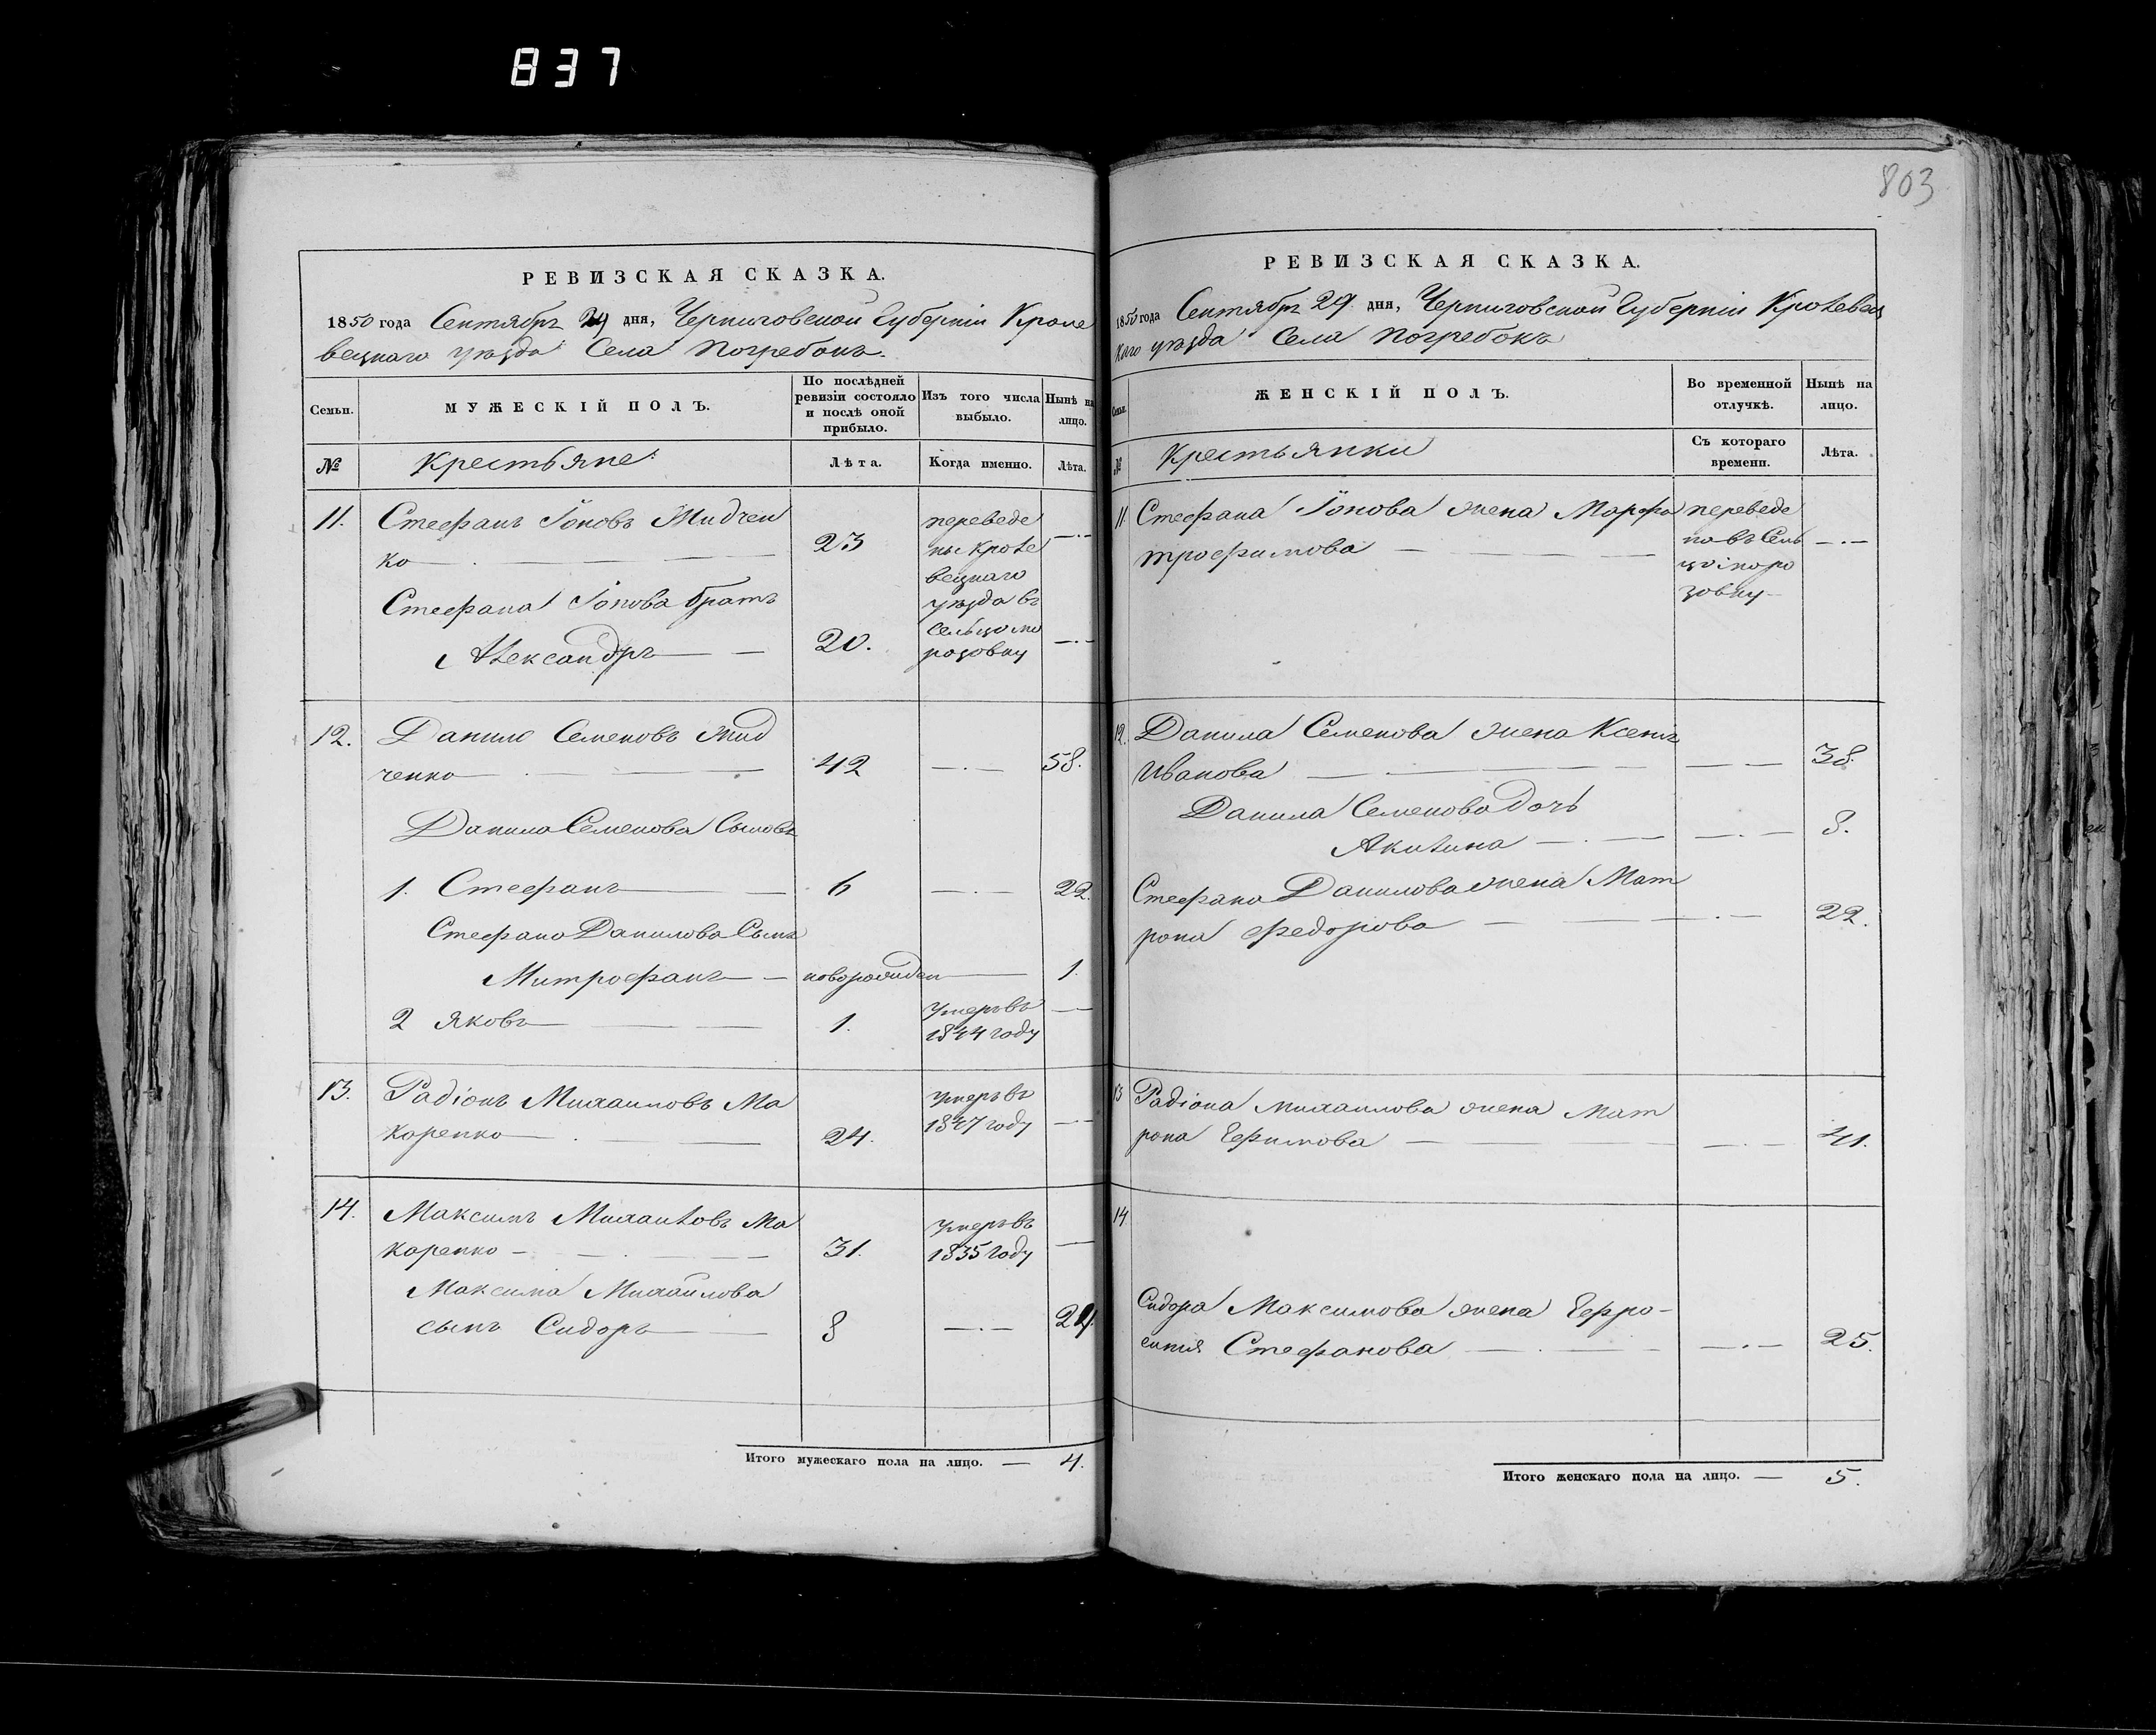 837
803
РЕВИЗСКАЯ СКАЗКА.
1850 года Сентября 29 дня, Черниговской Губерніи Кроле
вецкаго уезда Села Погребокъ.
Семьи.
МУЖЕСКІЙ ПОЛЪ.
По послѣдней
ревизіи состояло
и послѣ оной
прибыло.
Изъ того числа
выбыло.
Нынѣ на
лицо.
№
Крестьяне
Лѣта.
Когда именно.
Лѣта.
11. Стефанъ Іоновъ Жидчен
ко
23
переведе
ны Кроле
вецкаго
уезда въ
Сельцо мо
розовку
Стефана Іонова братъ
Александръ 20.
12. Данило Семеновъ Жид
ченко 42 58.
Данила Семенова Сыновья
1. Стефанъ 6 22.
Стефана Данилова Сынъ
Митрофанъ новорожден 1.
2 Яковъ 1. умеръ въ
1844 году
13. Радіонъ Михаиловъ Ма
каренко 24. умеръ въ
1847 году
14. Максимъ Михаиловъ Ма
каренко 31. умеръ въ
1835 году
Максима Михайлова
сынъ Сидоръ 8 24.
Итого мужескаго пола на лицо. — 4.
РЕВИЗСКАЯ СКАЗКА.
1850 года Сентября 29 дня, Черниговской Губерніи Кролевец
каго уезда Села Погребокъ
Семьи.
ЖЕНСКІЙ ПОЛЪ.
Во временной
отлучкѣ.
Нынѣ на
лицо.
№
Крестьянки
Съ котораго
времени.
Лѣта.
11. Стефана Іонова жена Марфа
трофимова
переведе
на въ Сель
цо моро
зовку
12. Данила Семенова жена Ксенія
Иванова 38.
Данила Семенова дочь
Акилина 8.
Стефана Данилова жена Мат
рона Федорова 22.
13 Радіона михаилова жена Мат
рона Ефимова 41.
14
Сидора Максимова жена Ефро-
синія Стефанова 25.
Итого женскаго пола на лицо. — 5.